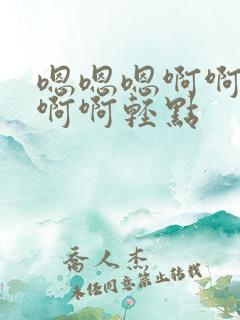 嗯嗯嗯啊啊
啊啊輕點
喬人杰
未经同意禁止转载